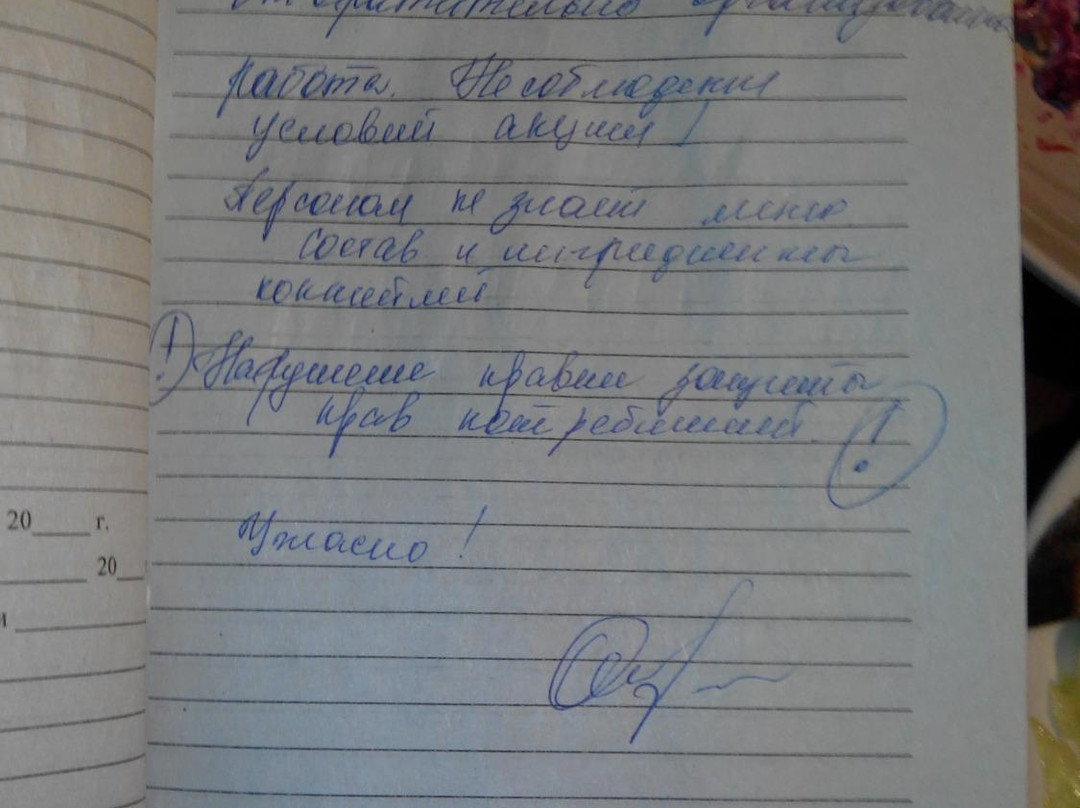 Отвратительно организована
работа. Несоблюдение
условий акции!
Персонал не знает меню
состав и ингридиенты
коктейлей
! Нарушение правил защиты
прав потребителей. !
Ужасно!
20 г.
20